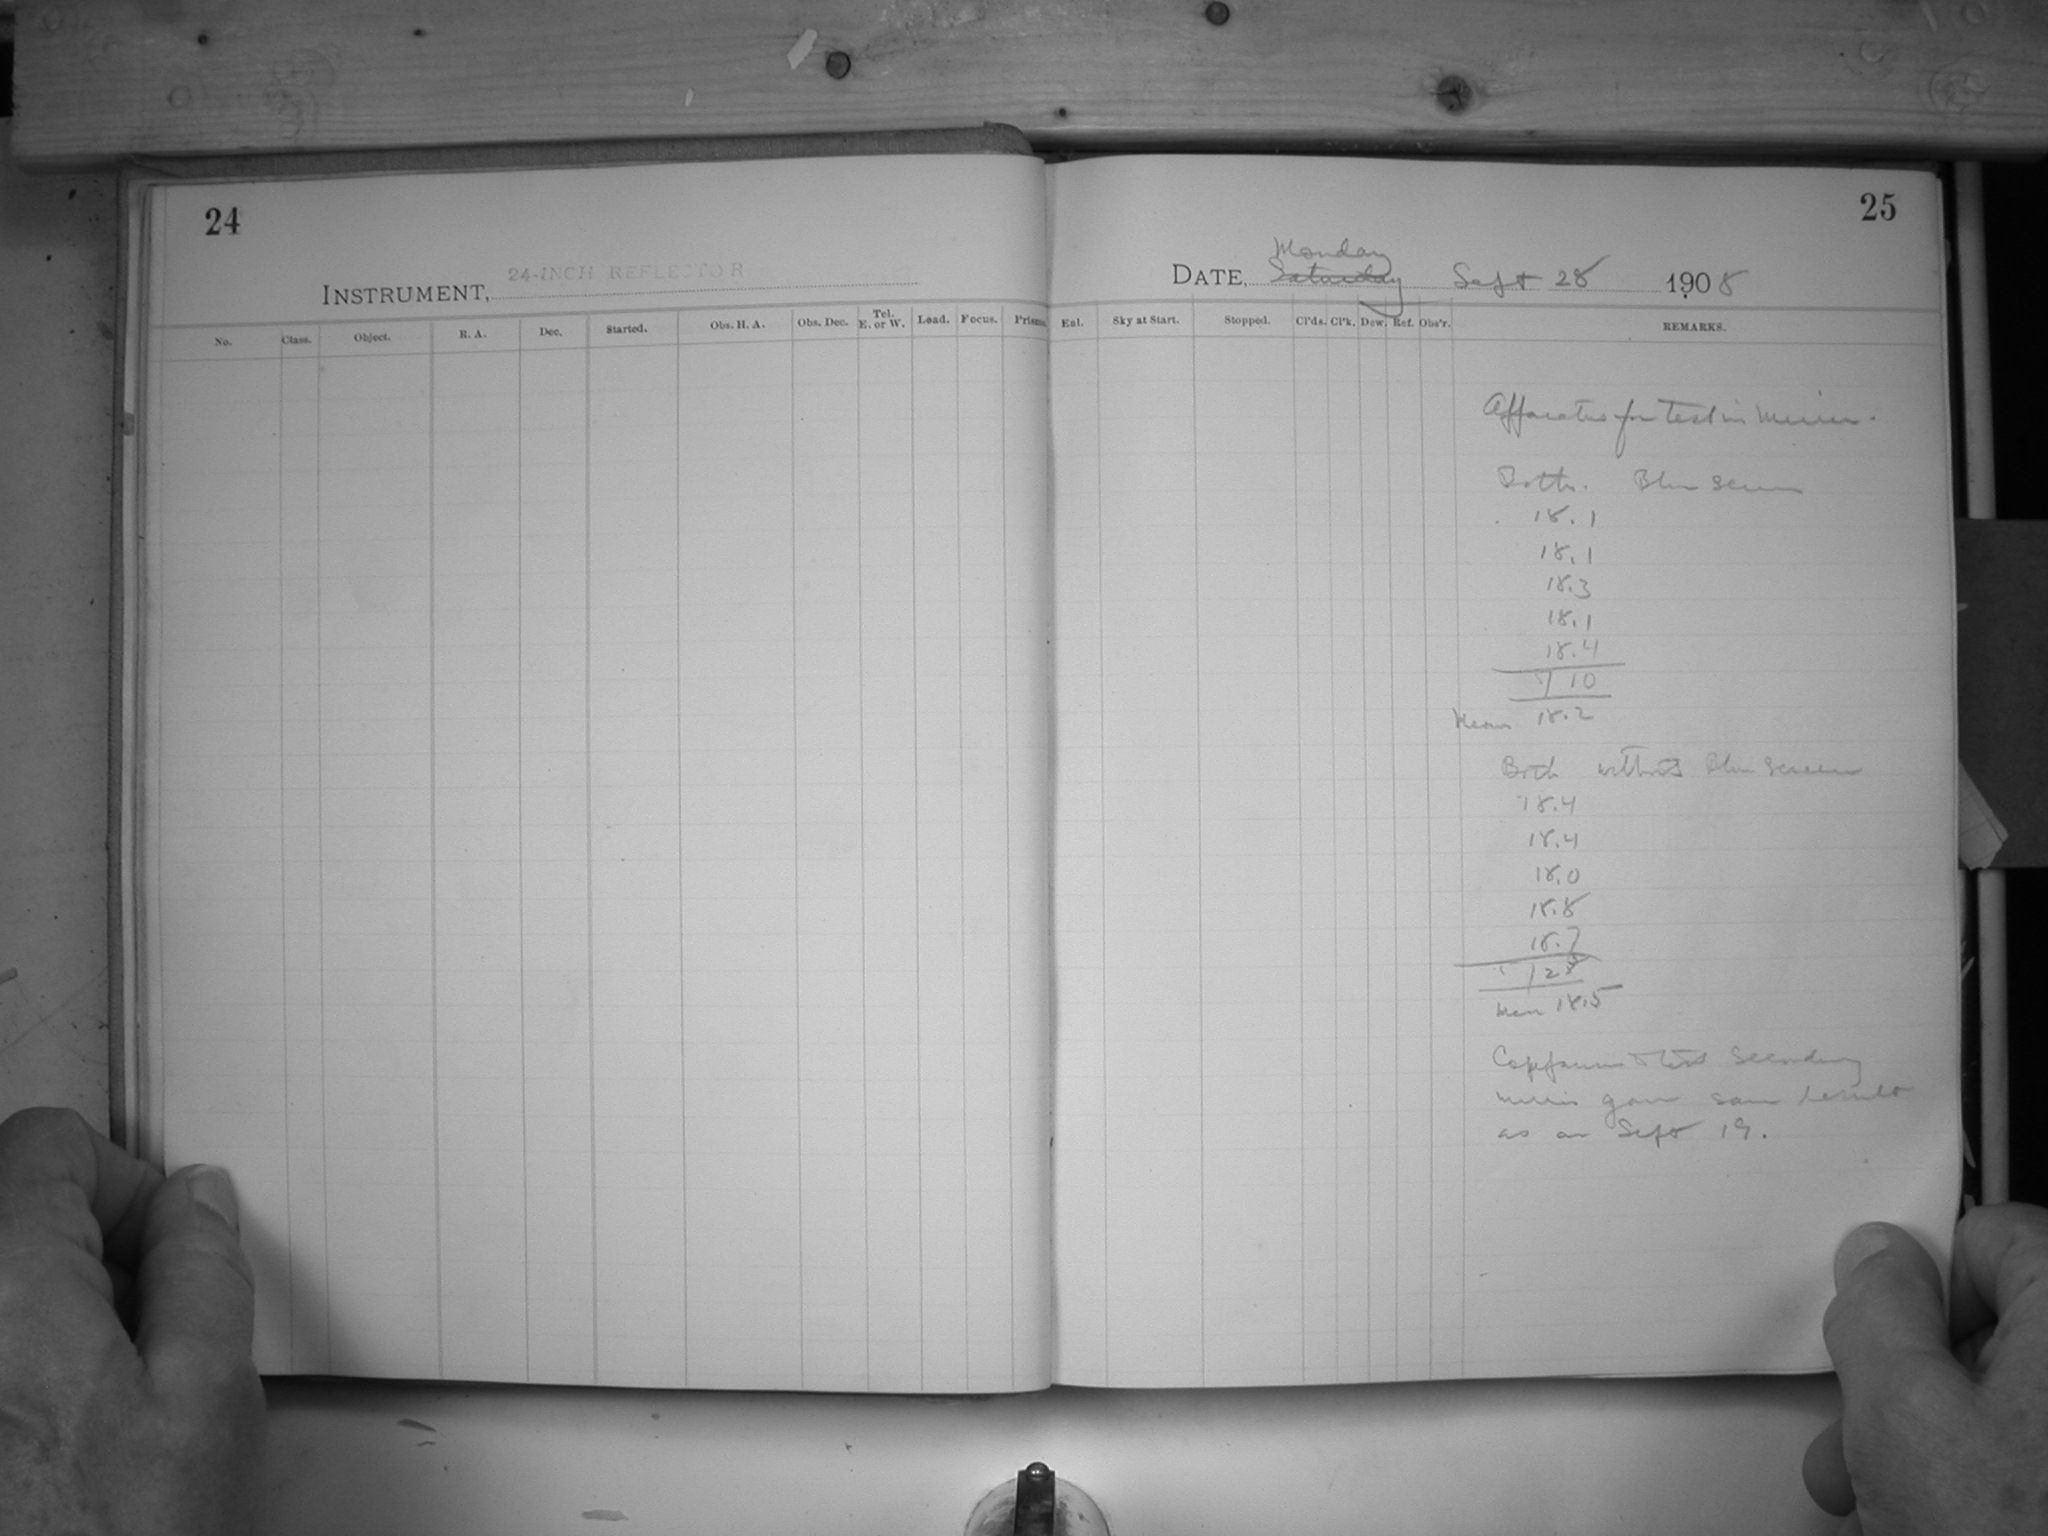 24
INSTRUMENT, 24-INCH REFLECTOR
No. Class. Object. R. A. Dec. Started. Obs. H. A. Obs. Dec. Tel. E. or W. Load. Focus. Prisms.
25
Monday
DATE, Saturday Sept 28 1908
Enl. Sky at Start. Stopped. Cl'ds. Cl'k. Dew. Ref. Obs'r. REMARKS.
Apparatus for test in Mirror.
Both. Blue screen
18.1
18.1
18.3
18.1
18.4
10
Mean 18.2
Both without Blue screen
18.4
18.4
18.0
18.8
18.7
123
Mean 18.5
secondary
mirror gave same results
as on Sept 19.